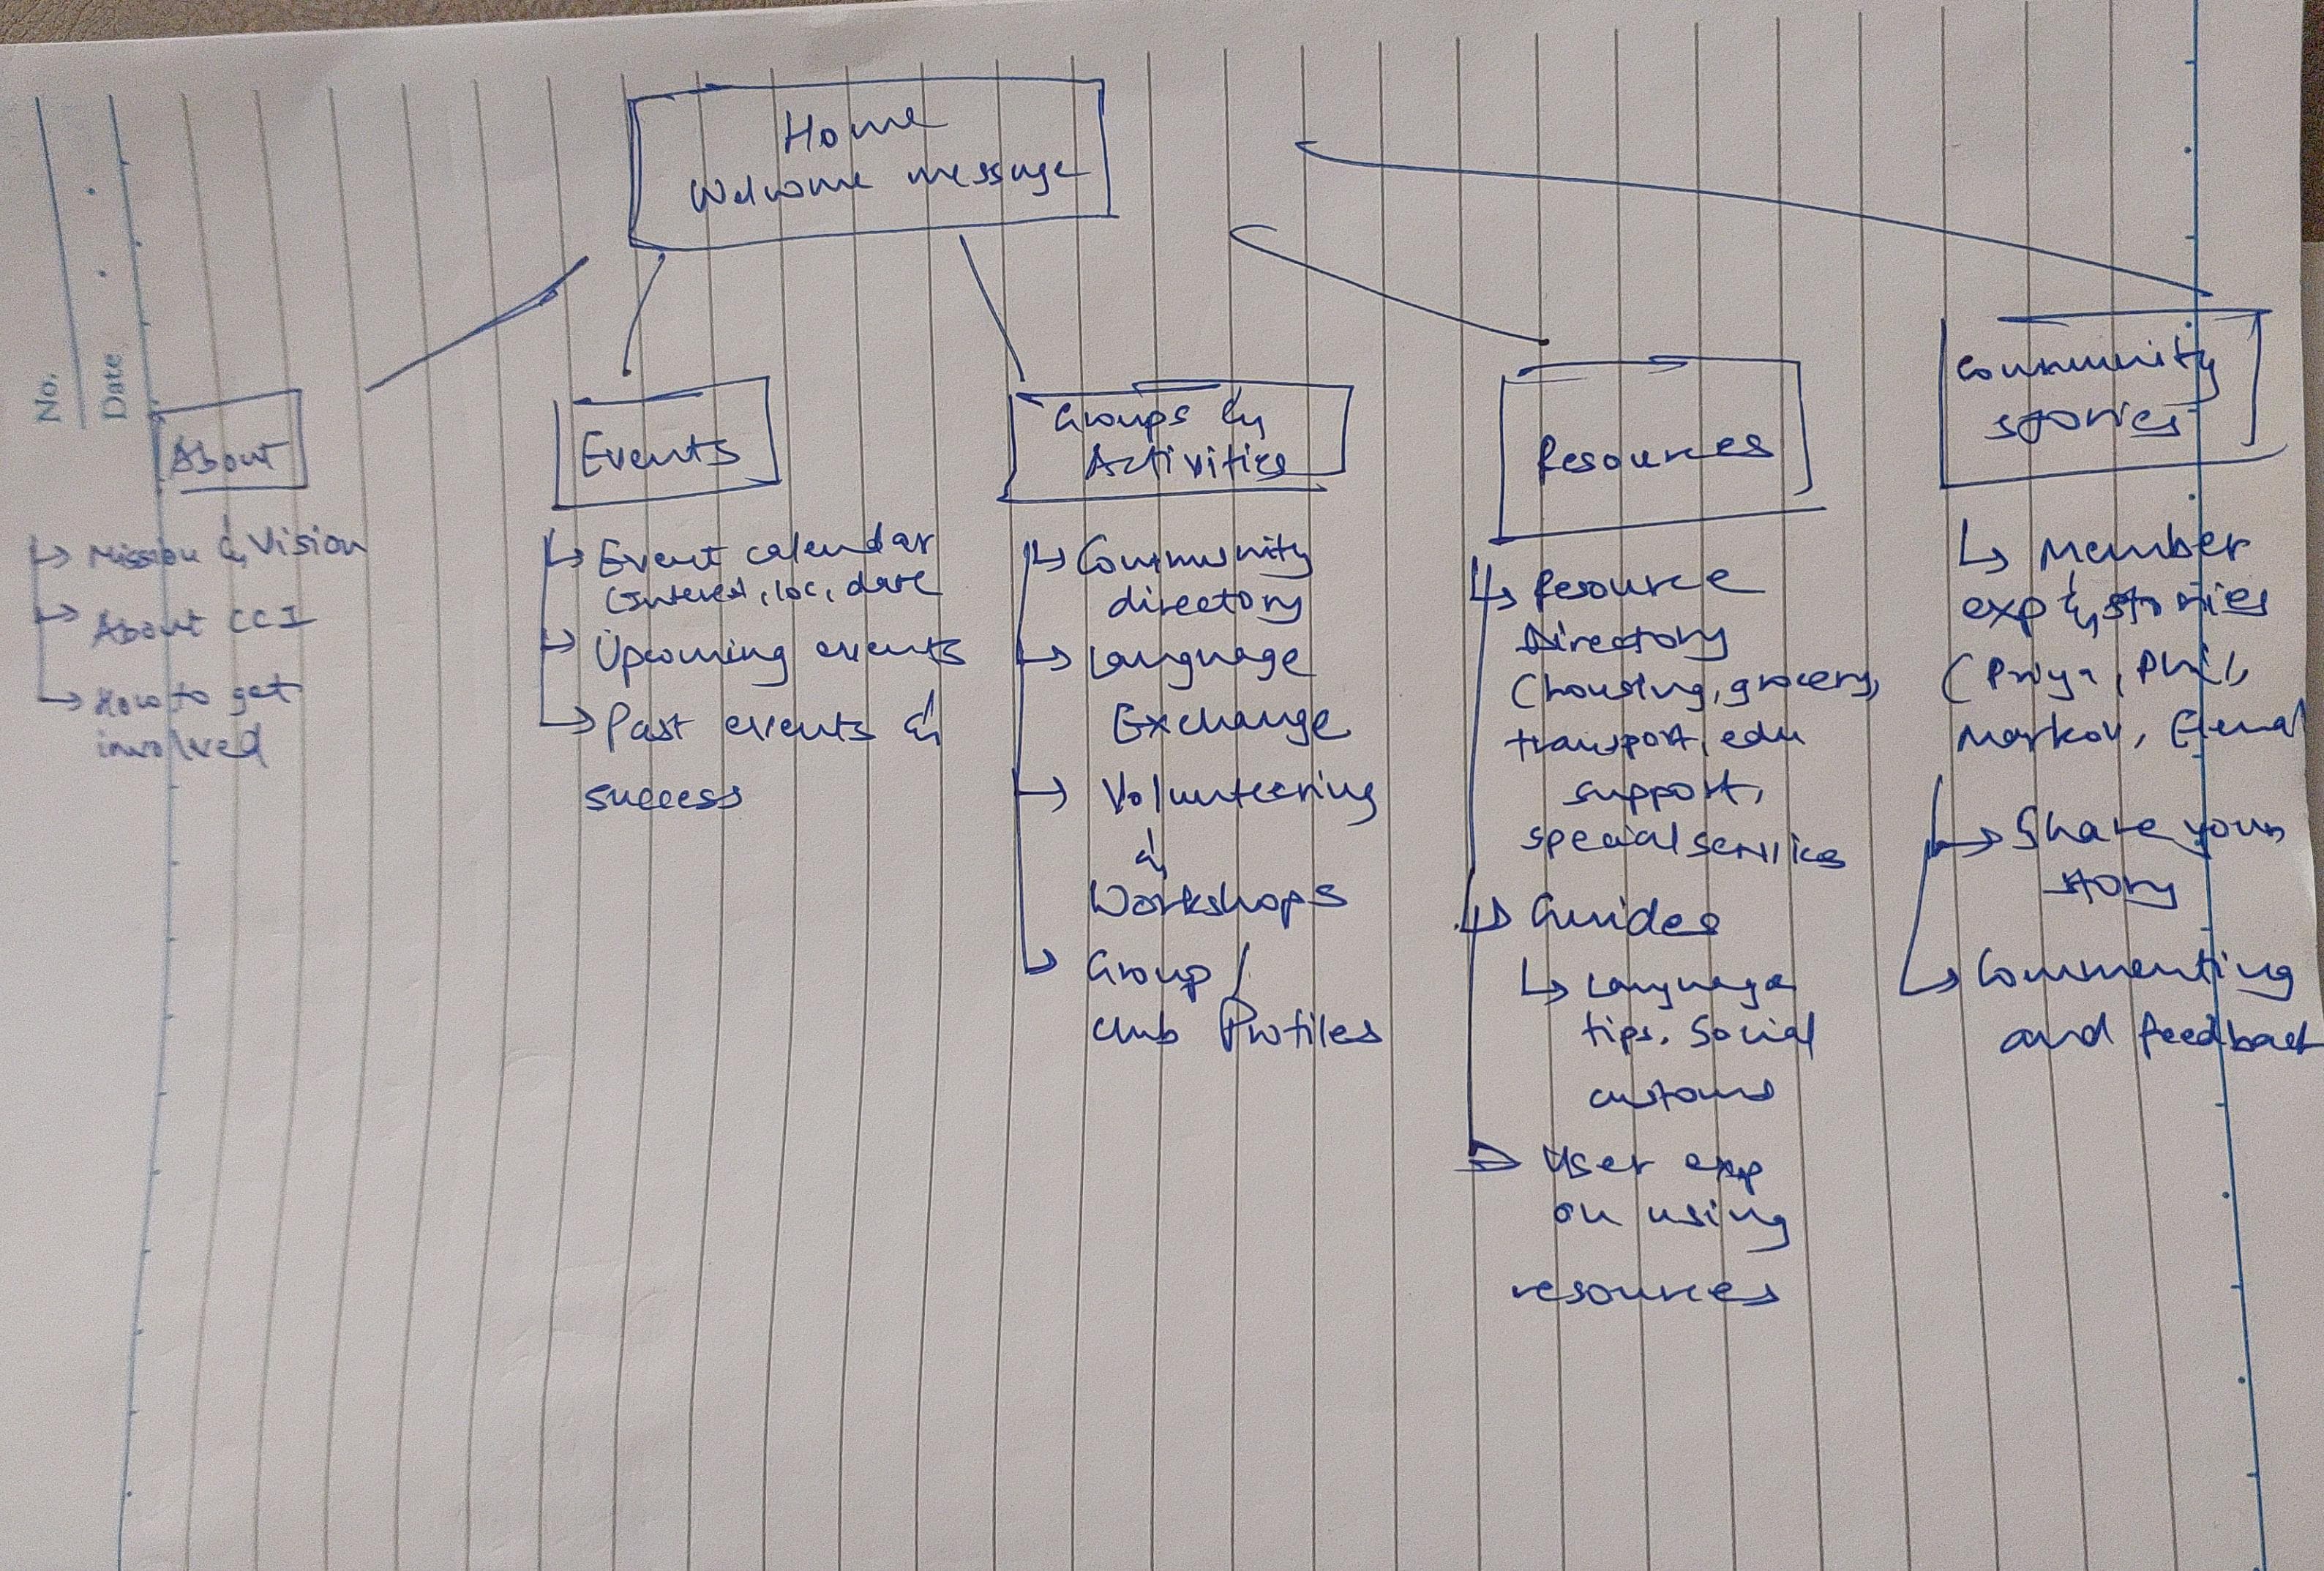 No.
Date
Home
Welcome message
About
Mission & Vision
About CCI
How to get
involved
Events
Event calendar
(Interest, loc, date
Upcoming events
Past events &
success
Groups &
Activities
Community
directory
Language
Exchange
Volunteering
&
Workshops
Group /
Club Profiles
Resources
Resource
Directory
(housing, grocery,
transport, edu
support,
special services
Guides
Language
tips, Social
customs
User exp
on using
resources
Community
stories
Member
exp & stories
(Priya, Phil,
Markov,
Share your
story
Commenting
and feedback